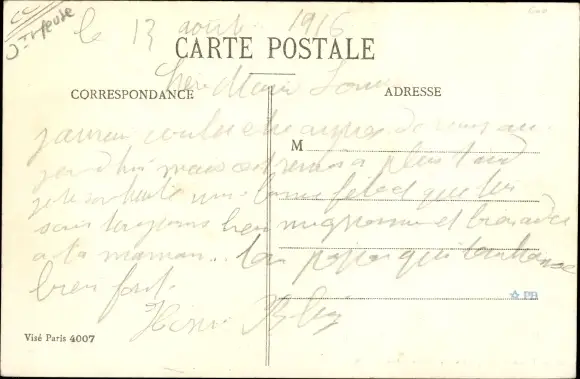 le 13 août 1916
CARTE POSTALE
CORRESPONDANCE
ADRESSE
Chère Marie Louise
j'aurais voulu être auprès de vous au-
M
jourd'hui mais c'est remis à plus tard
je te souhaite une bonne fête et que tu
sois toujours bien mignonne et
à ta maman... ton papa qui t'embrasse
bien fort.
Henri
☆ PB
Visé Paris 4007